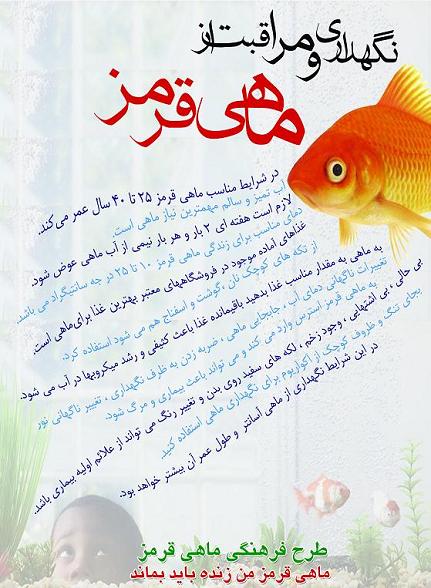 نگهداری و مراقبت از
ماهی قرمز
در شرایط مناسب ماهی قرمز ۲۵ تا ۴۰ سال عمر می‌کند.
آب تمیز و سالم مهمترین نیاز ماهی است.
لازم است هفته ای ۲ بار و هر بار نیمی از آب ماهی عوض شود.
دمای مناسب برای زندگی ماهی قرمز ۱۰ تا ۲۵ درجه سانتیگراد می باشد.
غذاهای آماده موجود در فروشگاههای معتبر بهترین غذا برای ماهی است.
از تکه های کوچک نان ،گوشت و اسفناج هم می شود استفاده کرد.
به ماهی به مقدار مناسب غذا بدهید باقیمانده غذا باعث کثیفی و رشد میکروبها در آب می شود.
تغییرات ناگهانی دمای آب ، جابجایی ماهی ، ضربه زدن به ظرف نگهداری ، تغییر ناگهانی نور
به ماهی قرمز استرس وارد می کند و می تواند باعث بیماری و مرگ شود.
بی حالی ، بی اشتهایی ، وجود زخم ، لکه های سفید روی بدن و تغییر رنگ می تواند از علائم اولیه بیماری باشد.
بجای تنگ و ظروف کوچک از آکواریوم برای نگهداری ماهی استفاده کنید.
در این شرایط نگهداری از ماهی آسانتر و طول عمر آن بیشتر خواهد بود.
طرح فرهنگی ماهی قرمز
ماهی قرمز من زنده باید بماند